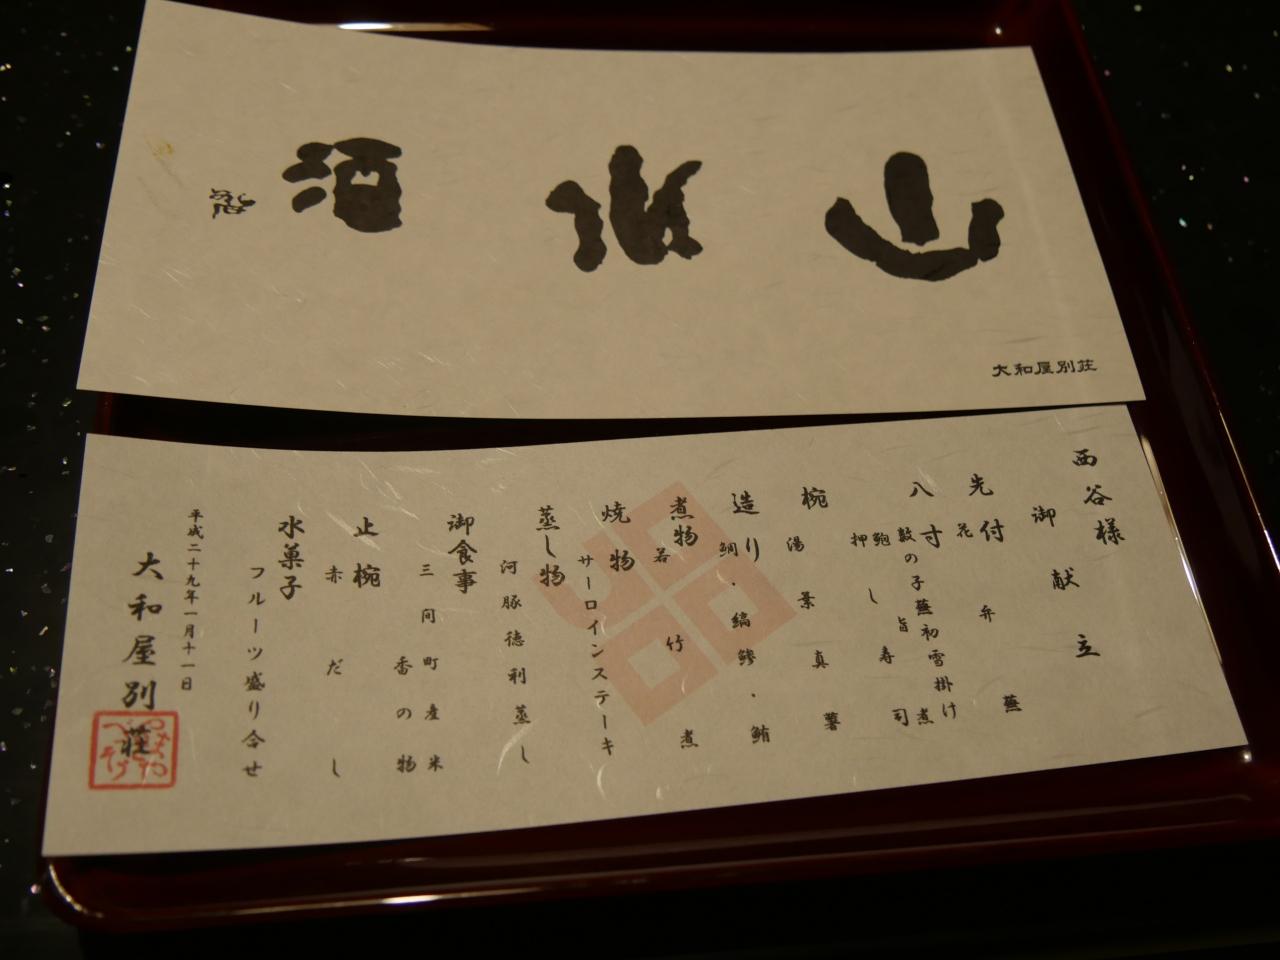 山水酒
大和屋別荘
西谷様
御献立
先付
花弁蕪
八寸
数の子蕪初雪掛け
鮑旨煮
押し寿司
椀
湯葉真薯
造り
鯛・縞鯵・鮪
煮物
若竹煮
焼物
サーロインステーキ
蒸し物
河豚徳利蒸し
御食事
三間町産米
香の物
止椀
赤だし
水菓子
フルーツ盛り合せ
平成二十九年一月十一日
大和屋別荘